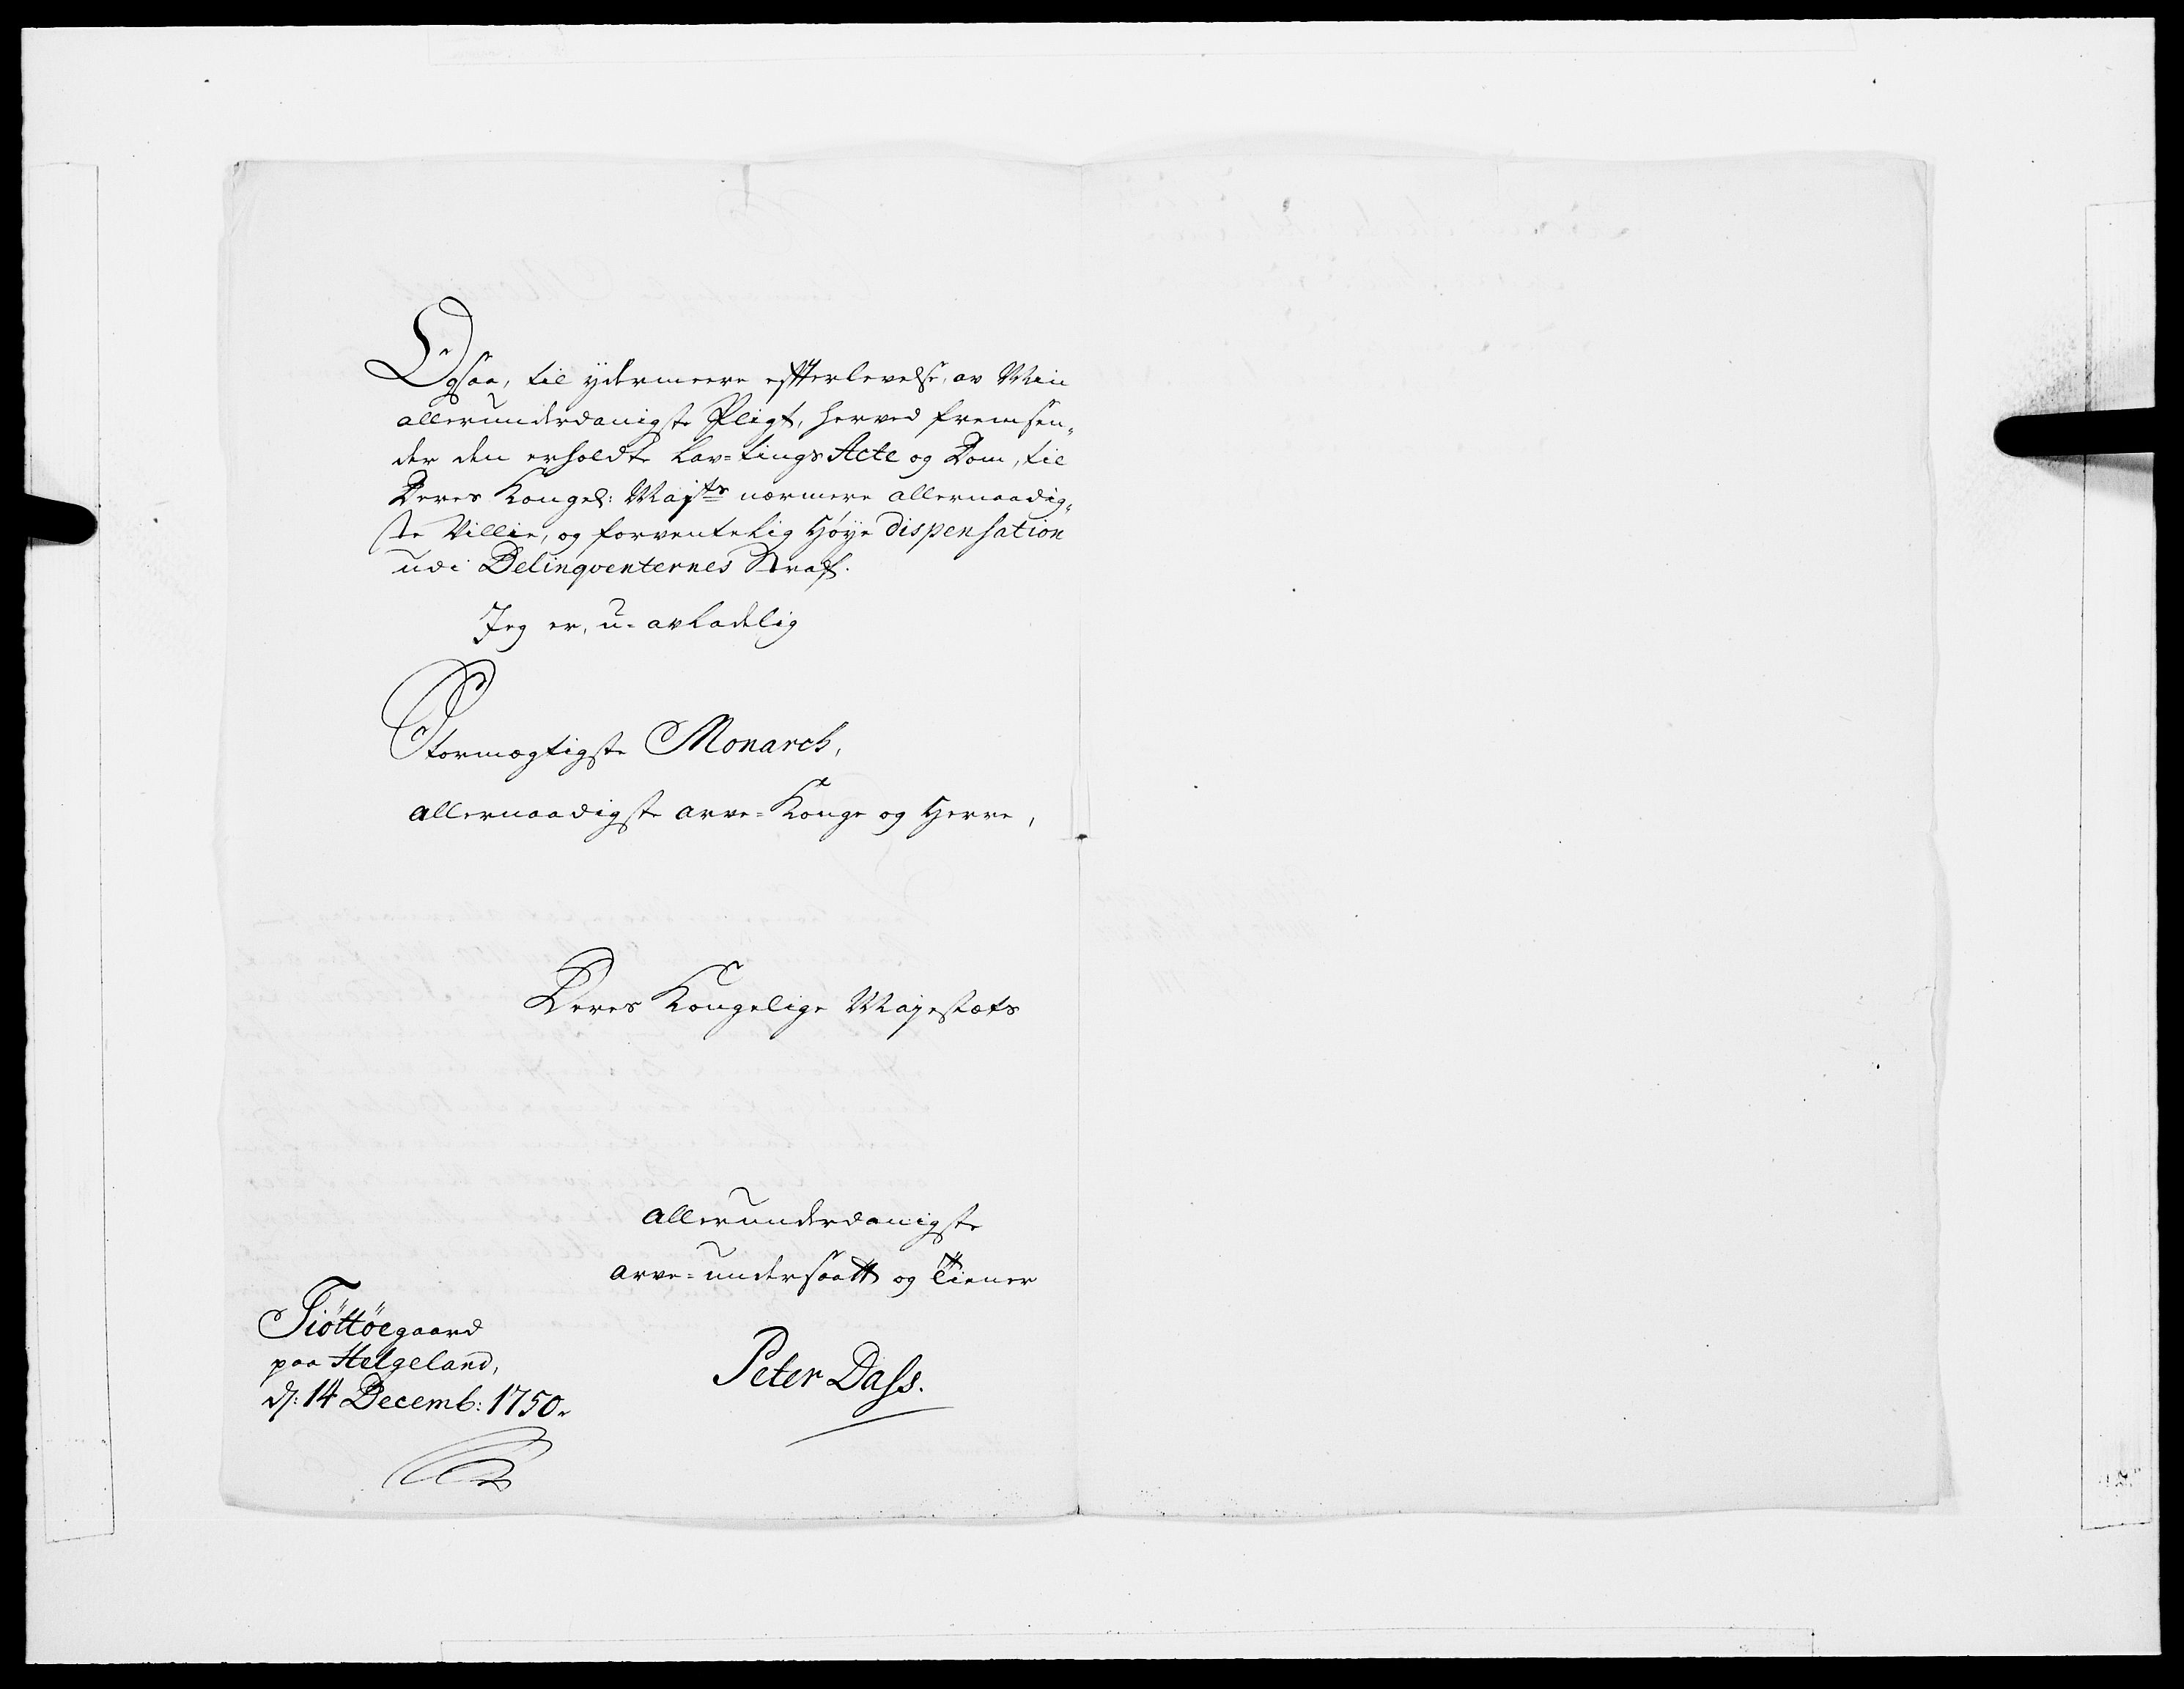 Ogsaa, til ydermeere efterlevelse, av Min
allerunderdanigste Pligt, herved fremsen„
der den erholdte Lav=tings Acte og Dom, til
Deres Kongel: Majts nærmere allernaadig„
ste Villie, og forventelig Høye dispensation
udi Delinqventernes Straf.
Jeg er, u=avladelig
Stormægtigste Monarch,
allernaadigste arve=Konge og Herre,
Deres Kongelige Majestæts
allerunderdanigste
arve=undersaatt og Tiener
Tiöttöegaard
paa Helgeland,
d: 14 Decemb: 1750.
Peter Dass.